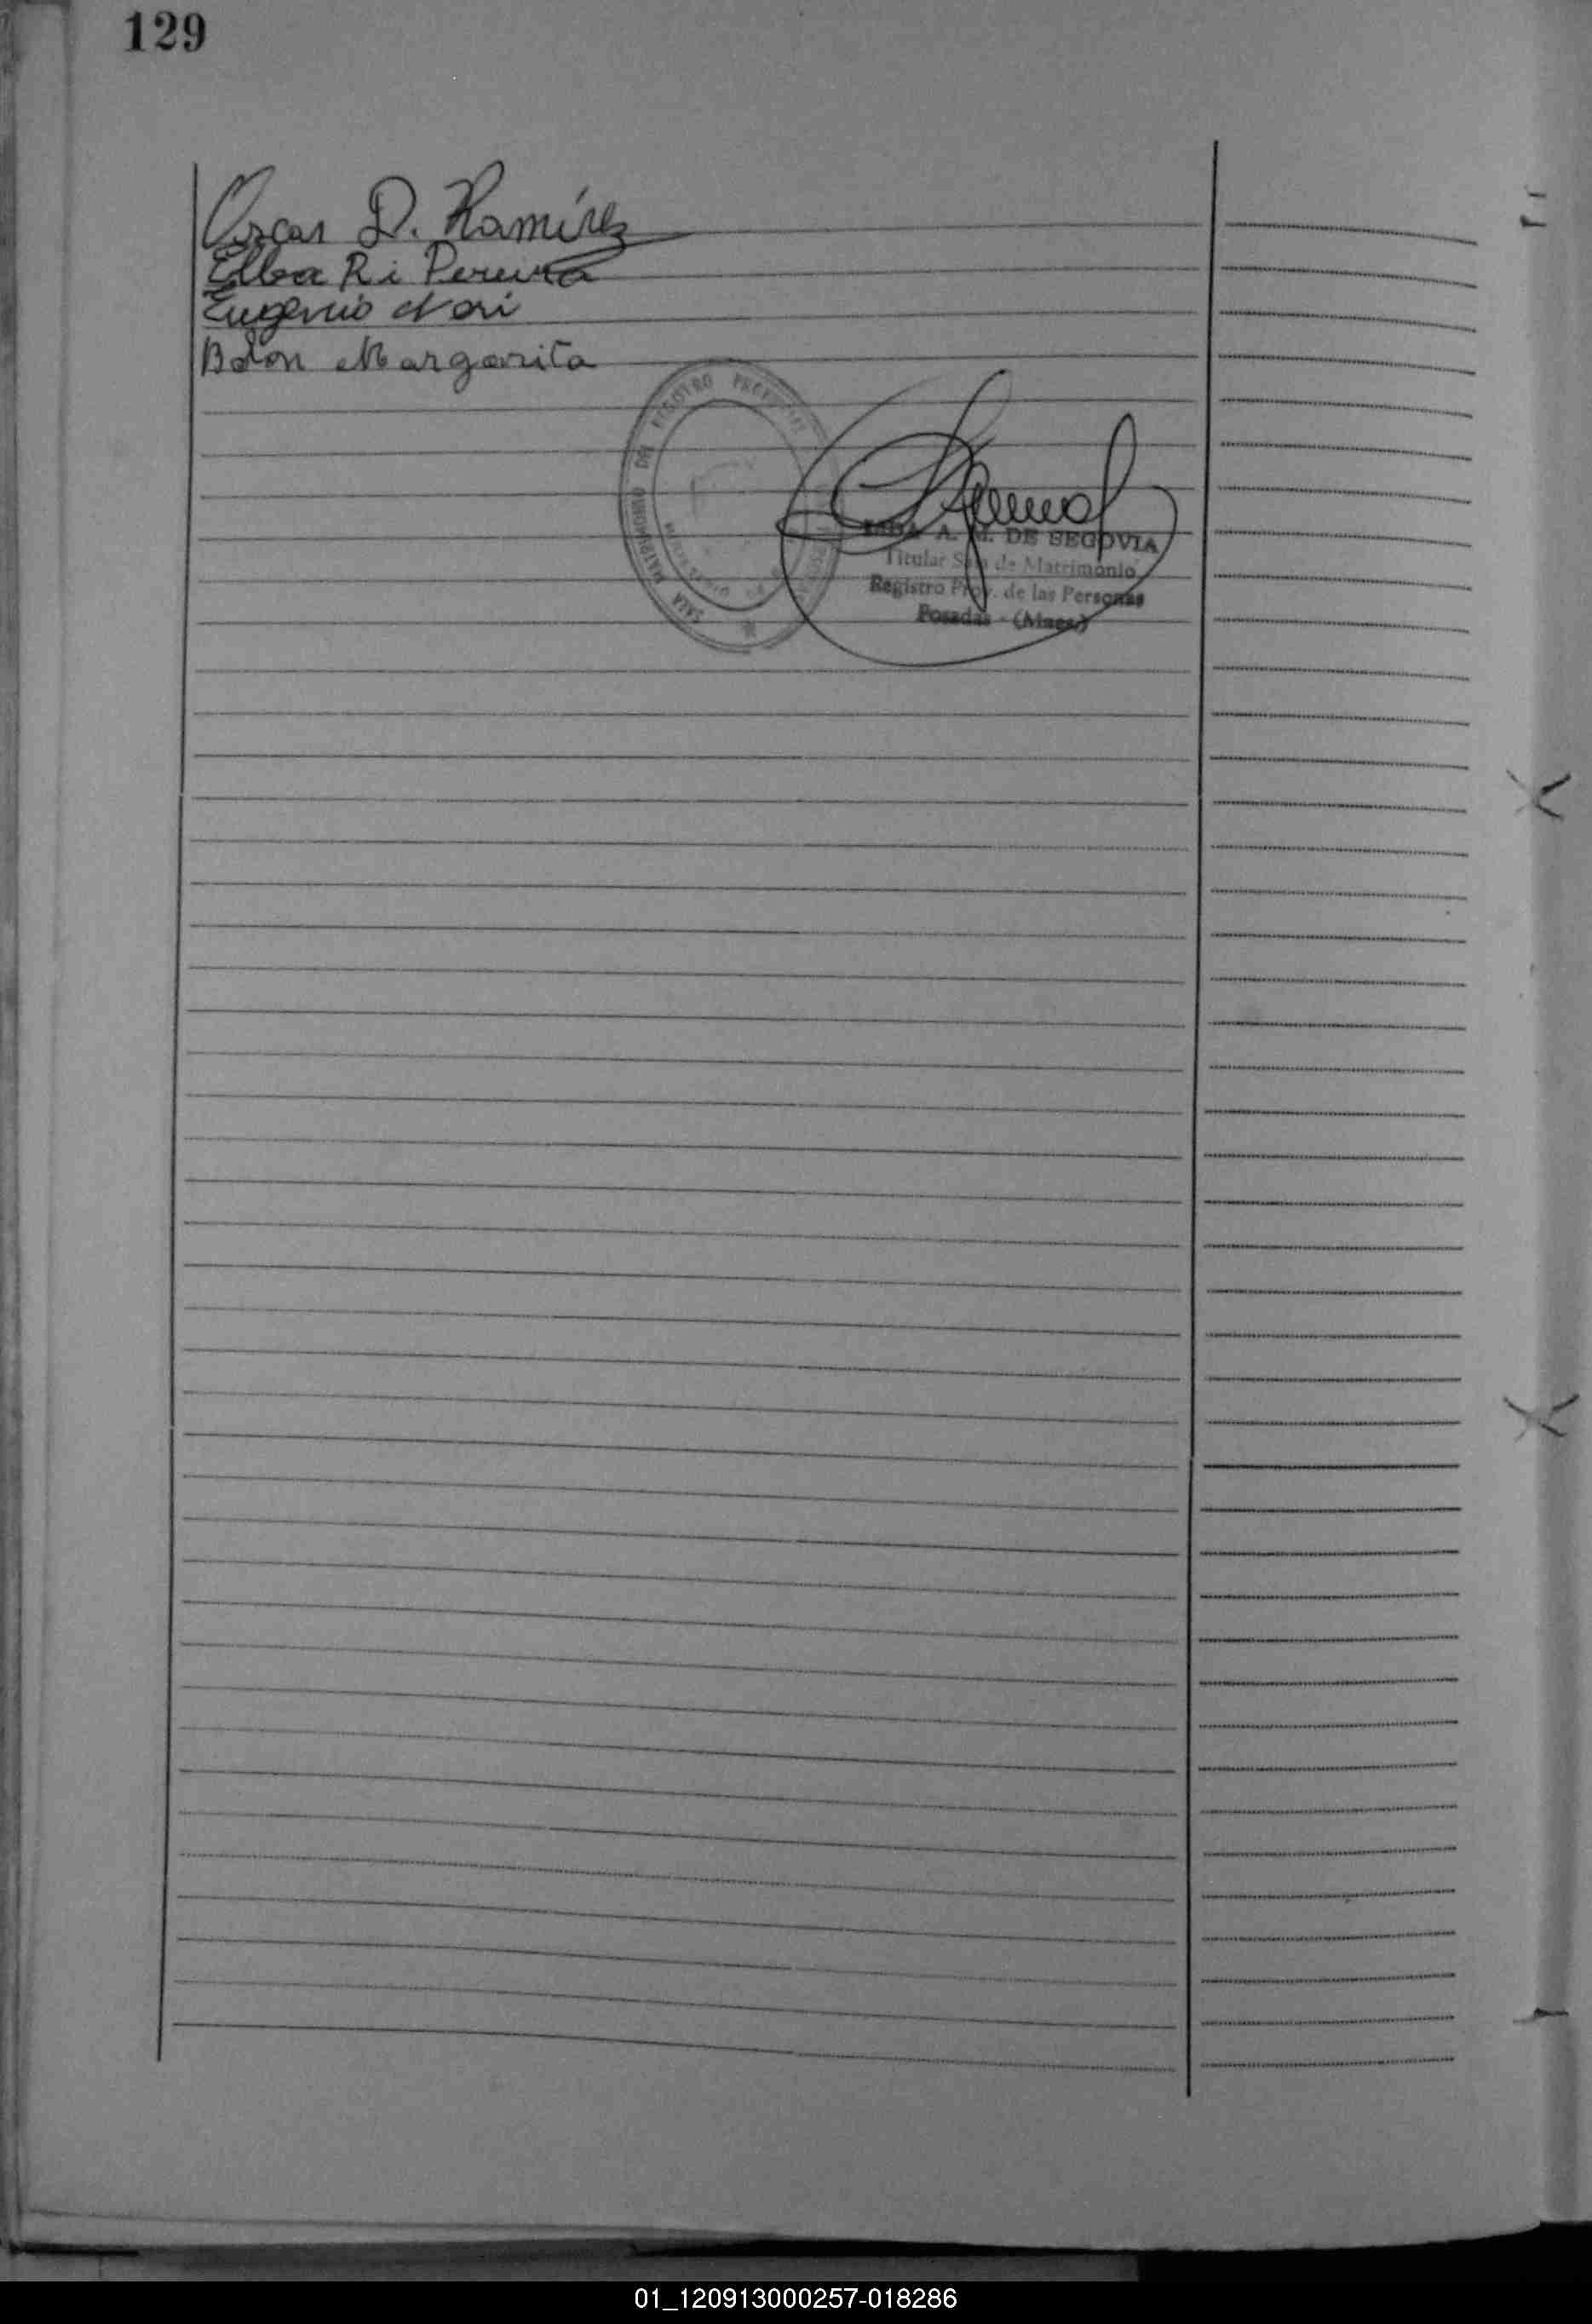 129
Oscar D. Ramírez
Elba R. Pereira
Eugenio Nori
Bdon Margarita
SALA MATRIMONIO DEL REGISTRO
A. M. DE SEGOVIA
Titular Sala de Matrimonio
Registro Prov. de las Personas
Posadas - (Mnes.)
01_120913000257-018286